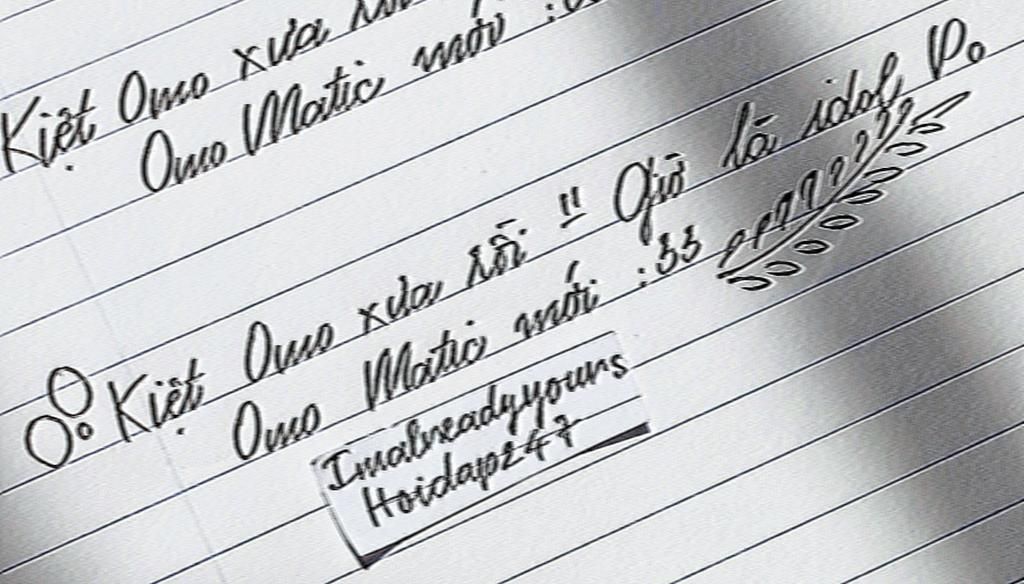 Kiệt Omo xưa
Omo Matic mới :
Kiệt Omo xưa rồi !! Giờ là idol
Omo Matic mới :33
Imalreadyyours
Hoidap247